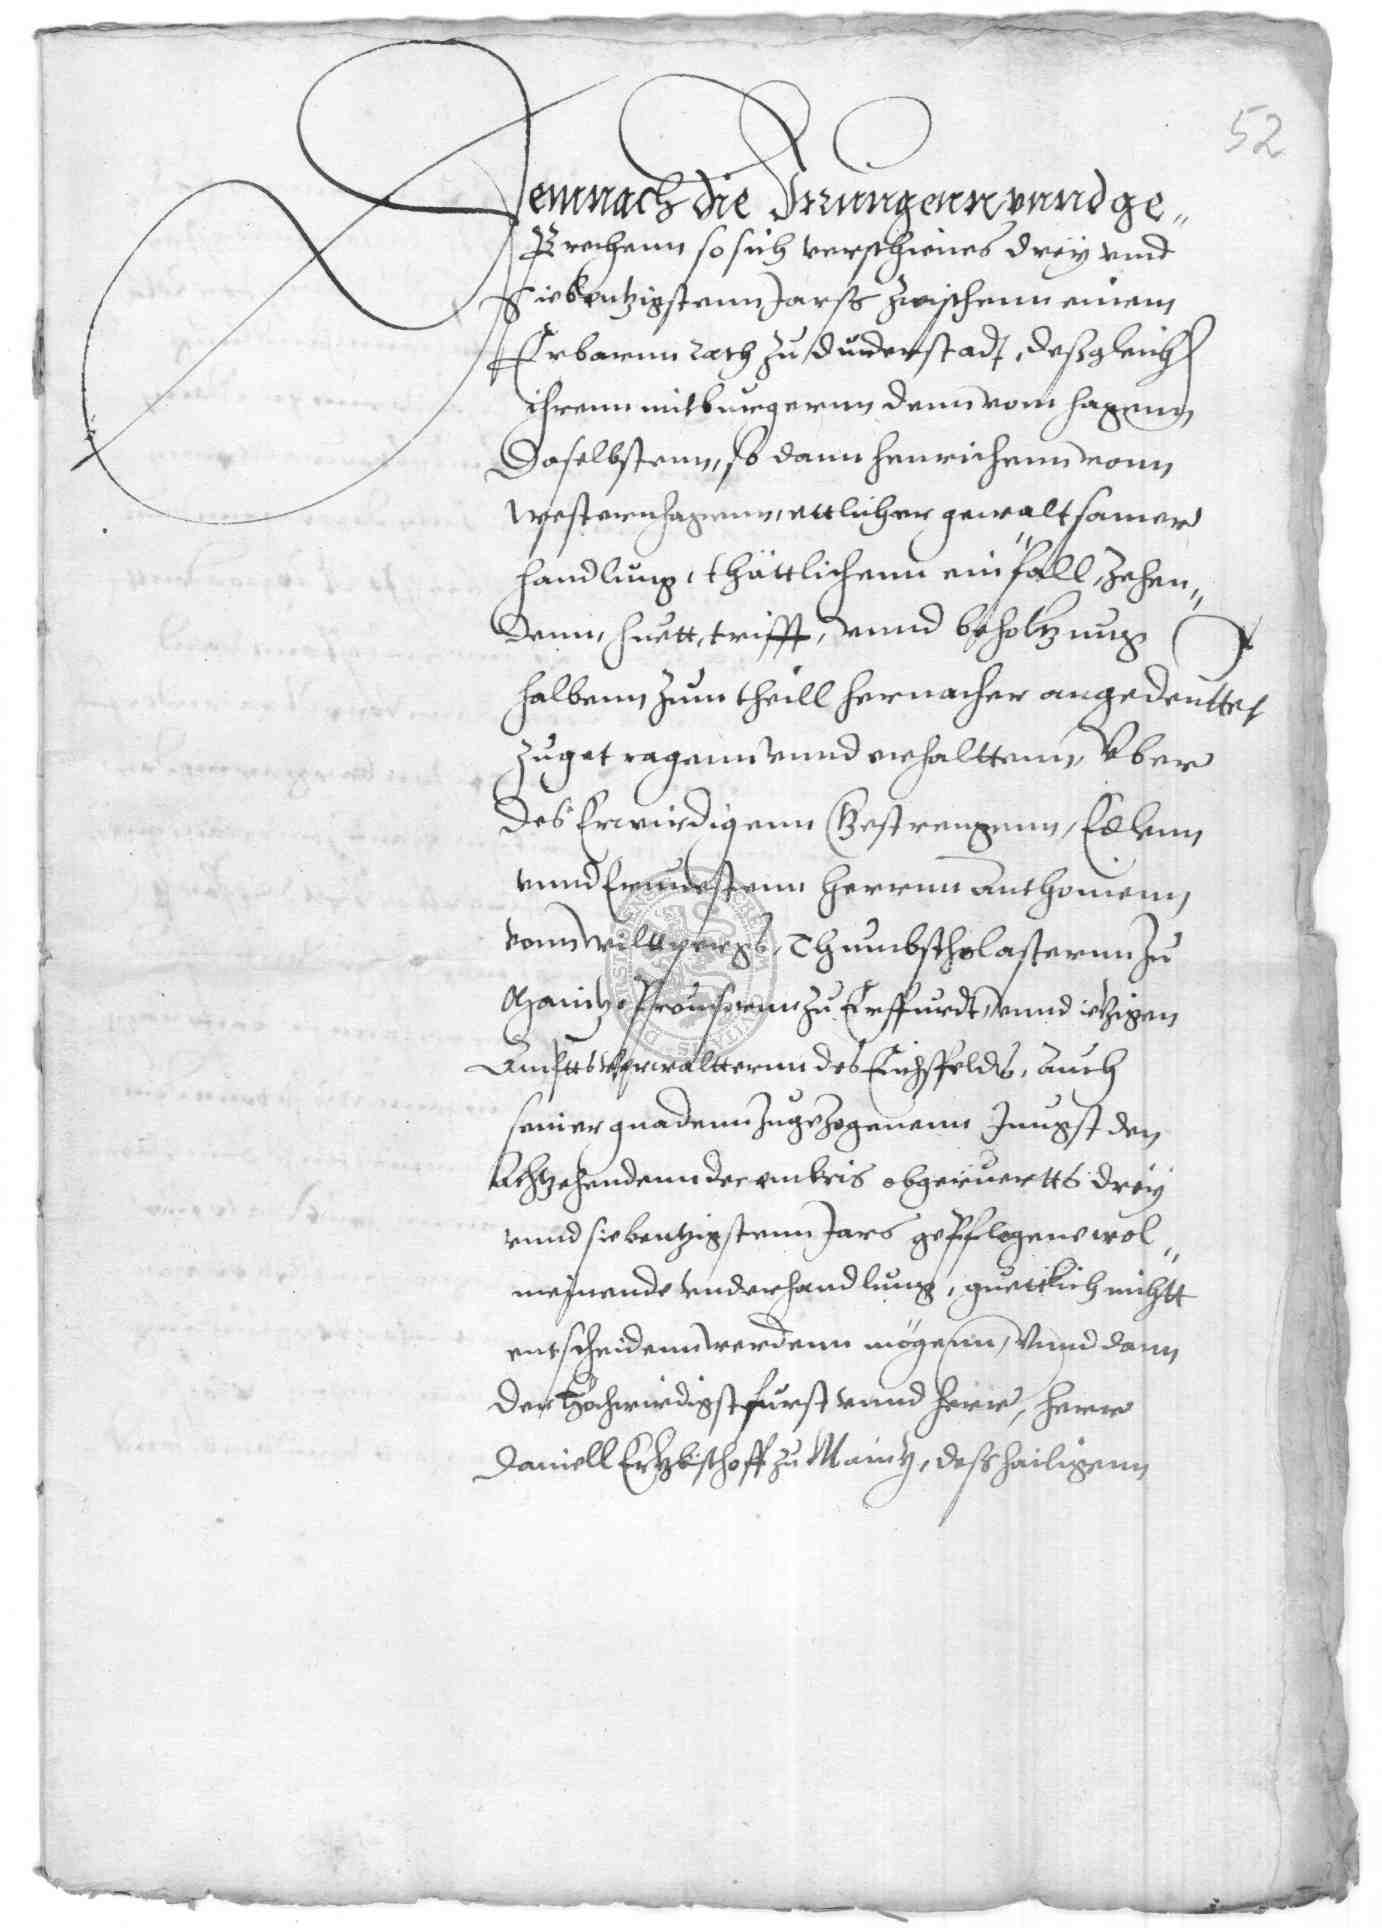 52
Demnach die Irrungenn vnnd ge„
Brechenn so sich verschienes drey vnd
Siebentzigstenn Jarß zwischenn einem
Erbarnn rath zu duderstadt, deßgleich
ihrenn mitburgernn denn vom hagenn
Daselbstenn, so dann henrichenn vonn
westernhagenn, ettlicher gewaltsamer
handlung, thättlichenn einfall, zehen„
denn, huett, trifft, vnnd beholtzung
halbenn zum theill hernacher angedeuttet
zugetragenn vnnd erhalttenn, Vber
des Erwirdigenn Gestrengenn, Edlenn
vnnd Ernuestenn herrnn Anthonienn
vonn wiltpergs, Thumbscholasternn zu
Maintz Prouisornn zu Erffurdt, vnnd itzigen
Ambtts Verwalternn des Eichsfelds, auch
seiner gnadenn zugezogenenn Jungst den
Achtzehendenn decembris obgeruertts drey
vnnd siebentzigstenn Jars gepflogene wol„
meinende vnderhandlung, guettlich nichtt
entscheidenn werdenn mögenn, Vnnd dann
der Hochwirdigst furst vnnd herr, herr
Daniell Ertzbischoff zu Maintz, deß hailigenn